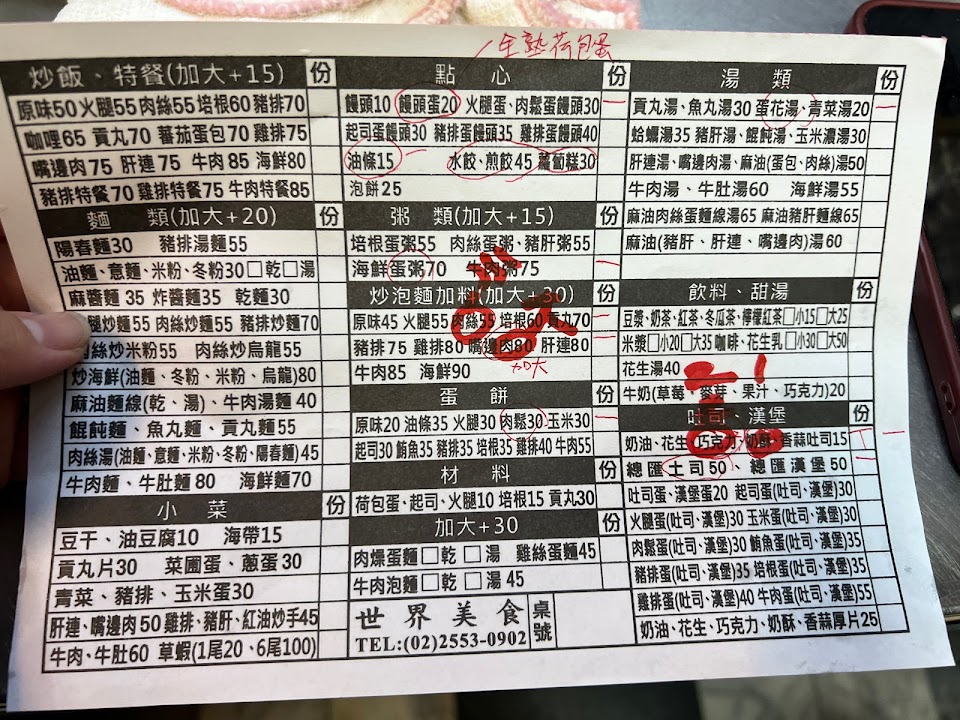 炒飯、特餐(加大+15) 份
原味50火腿55肉絲55培根60豬排70
咖哩65 貢丸70 蕃茄蛋包70 雞排75
嘴邊肉75 肝連75 牛肉85 海鮮80
豬排特餐70 雞排特餐75 牛肉特餐85
麵 類(加大+20) 份
陽春麵30 豬排湯麵55
油麵、意麵、米粉、冬粉30□乾□湯
麻醬麵 35 炸醬麵35 乾麵30
腿炒麵55 肉絲炒麵55 豬排炒麵70
絲炒米粉55 肉絲炒烏龍55
炒海鮮(油麵、冬粉、米粉、烏龍)80
麻油麵線(乾、湯)、牛肉湯麵 40
餛飩麵、魚丸麵、貢丸麵 55
肉絲湯(油麵、意麵、米粉、冬粉、陽春麵)45
牛肉麵、牛肚麵80 海鮮麵70
小 菜 份
豆干、油豆腐10 海帶15
貢丸片30 菜圃蛋、蔥蛋30
青菜、豬排、玉米蛋30
肝連、嘴邊肉50 雞排、豬肝、紅油炒手45
牛肉、牛肚60 草蝦(1尾20、6尾100)
全熟荷包蛋
點 心 份
饅頭10 饅頭蛋20 火腿蛋、肉鬆蛋饅頭30
起司蛋饅頭30 豬排蛋饅頭35 雞排蛋饅頭40
油條15 水餃、煎餃45 蘿蔔糕30
泡餅25
粥 類(加大+15) 份
培根蛋粥55 肉絲蛋粥、豬肝粥55
海鮮蛋粥70 牛肉粥75
炒泡麵加料(加大+30) 份
原味45 火腿55肉絲55 培根60 貢丸70
豬排75 雞排80 嘴邊肉80 肝連80
牛肉85 海鮮90
加大
蛋 餅 份
原味20 油條35 火腿30 肉鬆30玉米30
起司30 鮪魚35 豬排35 培根35 雞排40 牛肉55
材 料 份
荷包蛋、起司、火腿10 培根15 貢丸30
加大+30 份
肉燥蛋麵□乾□湯 雞絲蛋麵45
牛肉泡麵□乾□湯 45
世界美食
TEL:(02)2553-0902
桌號
湯 類 份
貢丸湯、魚丸湯30 蛋花湯、青菜湯20
蛤蠣湯35 豬肝湯、餛飩湯、玉米濃湯30
肝連湯、嘴邊肉湯、麻油(蛋包、肉絲)湯50
牛肉湯、牛肚湯60 海鮮湯55
麻油肉絲蛋麵線湯65 麻油豬肝麵線65
麻油(豬肝、肝連、嘴邊肉)湯60
飲料、甜湯 份
豆漿、奶茶、紅茶、冬瓜茶、檸檬紅茶□小15□大25
米漿□小20□大35 咖啡、花生乳□小30□大50
花生湯40
牛奶(草莓、麥芽、果汁、巧克力)20
吐司、漢堡 份
奶油、花生、巧克力、奶酥、香蒜吐司15
總匯土司50 總匯漢堡50
吐司蛋、漢堡蛋20 起司蛋(吐司、漢堡)30
火腿蛋(吐司、漢堡)30 玉米蛋(吐司、漢堡)30
肉鬆蛋(吐司、漢堡)30 鮪魚蛋(吐司、漢堡)35
豬排蛋(吐司、漢堡)35 培根蛋(吐司、漢堡)35
雞排蛋(吐司、漢堡)40 牛肉蛋(吐司、漢堡)55
奶油、花生、巧克力、奶酥、香蒜厚片25